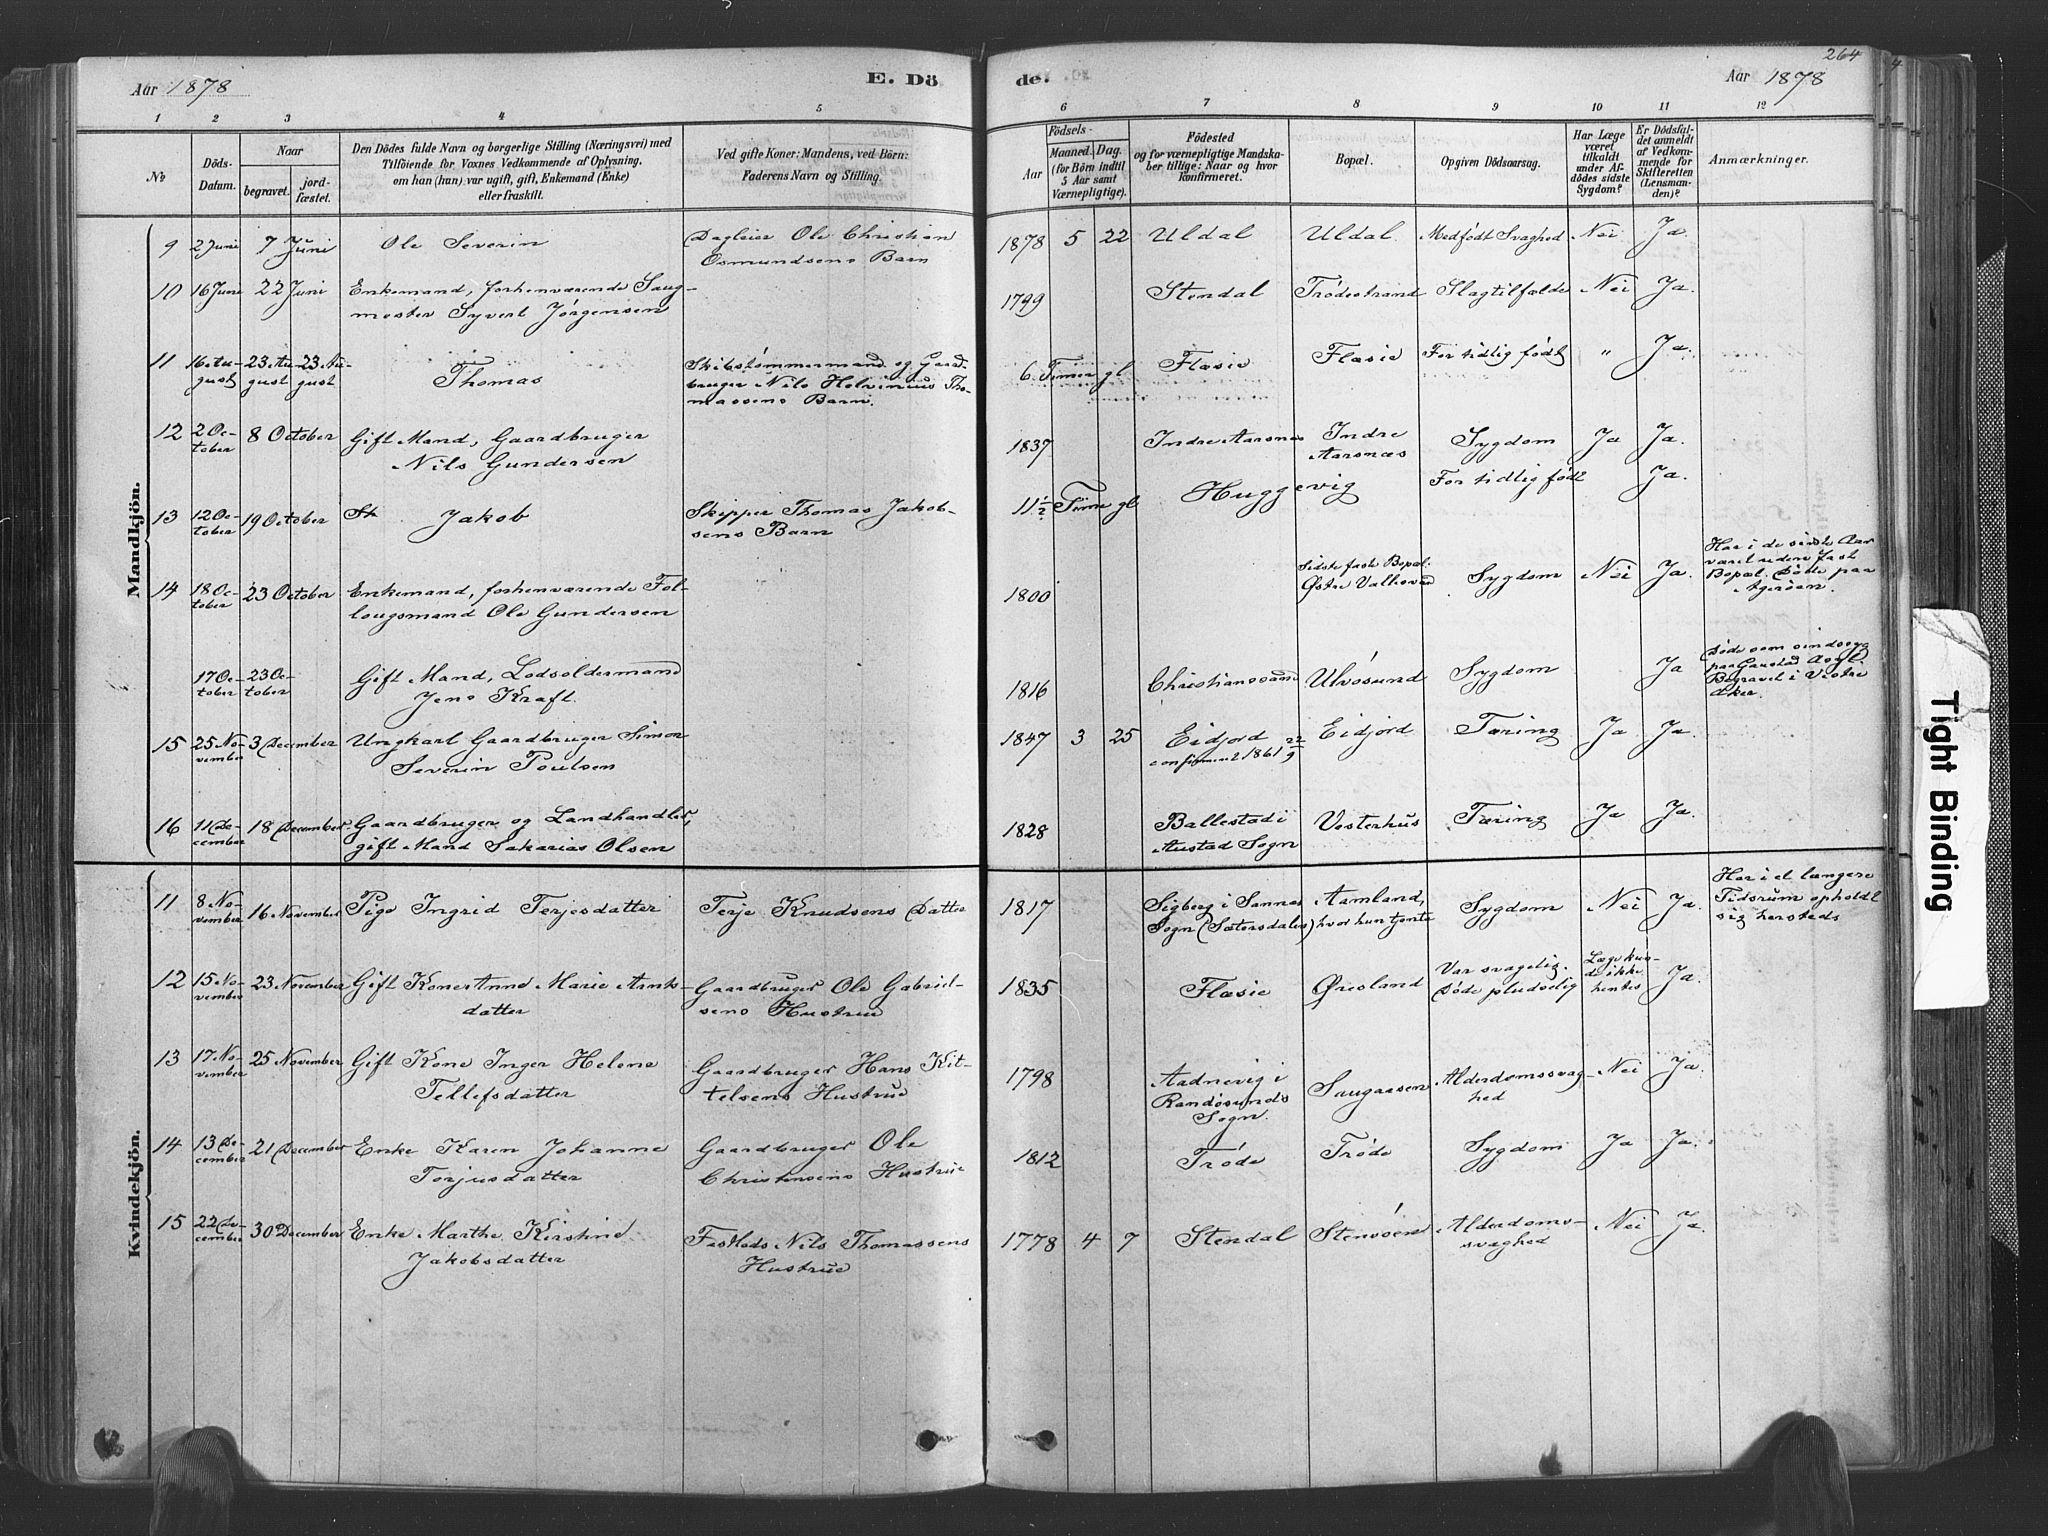 Aar 1878
E. Dö
de.
264
Aar 1878
1 2 3 4 5
6 7 8 9 10 11 12
No
Döds-Datum.
Naar
begravet.
jord-fæstet.
Den Dödes fulde Navn og borgerlige Stilling (Næringsvei) med
Tilföiende for Voxnes Vedkommende af Oplysning,
om han (hun) var ugift, gift, Enkemand (Enke)
eller fraskilt.
Ved gifte Koner: Mandens, ved Börn:
Faderens Navn og Stilling.
Födsels-
Aar
Maaned.
Dag.
(for Börn indtil
5 Aar samt
Værnepligtige).
Födested
og for værnepligtige Mandska-
ber tillige: Naar og hvor
konfirmeret.
Bopæl.
Opgiven Dödsaarsag.
Har Læge
været
tilkaldt
under Af-
dödes sidste
Sygdom?
Er Dödsfal-
det anmeldt
af Vedkom-
mende for
Skifteretten
(Lensman-
den)?
Anmærkninger.
Mandkjön.
9 2 Juni 7 Juni Ole Severin Dagleier Ole Christian
Osmundsens Barn
1878 5 22 Uldal Uldal. Medfödt Svaghed Nei Ja.
10 16 Juni 22 Juni Enkemand, forhenværende Saug-
mester Syvert Jörgensen
1799 Stendal Trödestrand Slagtilfælde Nei Ja.
11 16 Au-
gust 23 Au-
gust 23 Au-
gust Thomas Skibstömmermand og Gaard-
bruger Nils Helvinius Tho-
massens Barn.
6 Timer gl Flæsie Flæsie For tidlig födt " Ja.
12 2 Oc-
tober 8 October Gift Mand, Gaardbruger
Nils Gundersen
1837 Indre Aarsnes Indre
Aarsnæs Sygdom Ja Ja.
13 12 Oc-
tober 19 October Jakob Skipper Thomas Jakob-
sens Barn
11 1/2 Time gl Huggevig For tidlig födt Ja.
14 18 Oc-
tober 23 October Enkemand, forhenværende Fol-
lougsmand Ole Gundersen
1800 Sidste faste Bopæl
Östre Vallesverd Sygdom Nei Ja.
Har i de sidste Aar
været uden fast
Bopæl. Döde paa
Ageröen.
17 Oc-
tober 23 Oc-
tober Gift Mand, Lodsoldermand
Jens Kraft.
1816 Christianssand Ulvösund Sygdom Ja
Döde som sindssyg
paa Gaustad Asyl.
Begravet i Vestre
Aker.
15 25 No-
vember 3 December Ungkarl Gaardbruger Simon
Severin Poulsen
1847 3 25 Eidjord
confirmeret 1861 22/9 Eidjord Tæring Ja Ja.
16 11 De-
cember 18 December Gaardbruger og Landhandler,
gift Mand Sakarias Olsen
1828 Ballestad i
Austad Sogn Vesterhus Tæring Ja Ja.
Kvindekjön.
11 8 No-
vember 16 November Pige Ingrid Terjesdatter Terje Knudsens Datter
1817 Sigberg i Sannes
Sogn (Sætersdalen) Aamland,
hvor hun tjente Sygdom Nei Ja.
Har i et længere
Tidsrum opholdt
sig hersteds
12 15 No-
vember 23 November Gift Kone Anne Marie Arnts-
datter Gaardbruger Ole Gabriel-
sens Hustrue
1835 Flæsie Øresland Var svagelig.
Döde pludselig Læge kun-
de ikke
hentes Ja.
13 17 No-
vember 25 November Gift Kone Inger Helene
Tellefsdatter Gaardbruger Hans Kit-
telsens Hustrue
1798 Aadnevig i
Randösunds
Sogn. Saugaasen Alderdomssvag-
hed Nei Ja.
14 13 De-
cember 21 December Enke Karen Johanne
Torjusdatter Gaardbruger Ole
Christensens Hustrue
1812 Tröde Tröde Sygdom Ja Ja.
15 22 De-
cember 30 December Enke Marthe Kirstine
Jakobsdatter Fastlods Nils Thomassens
Hustrue
1778 4 7 Stendal Stensöen Alderdoms-
svaghed Nei Ja.
Tight Binding